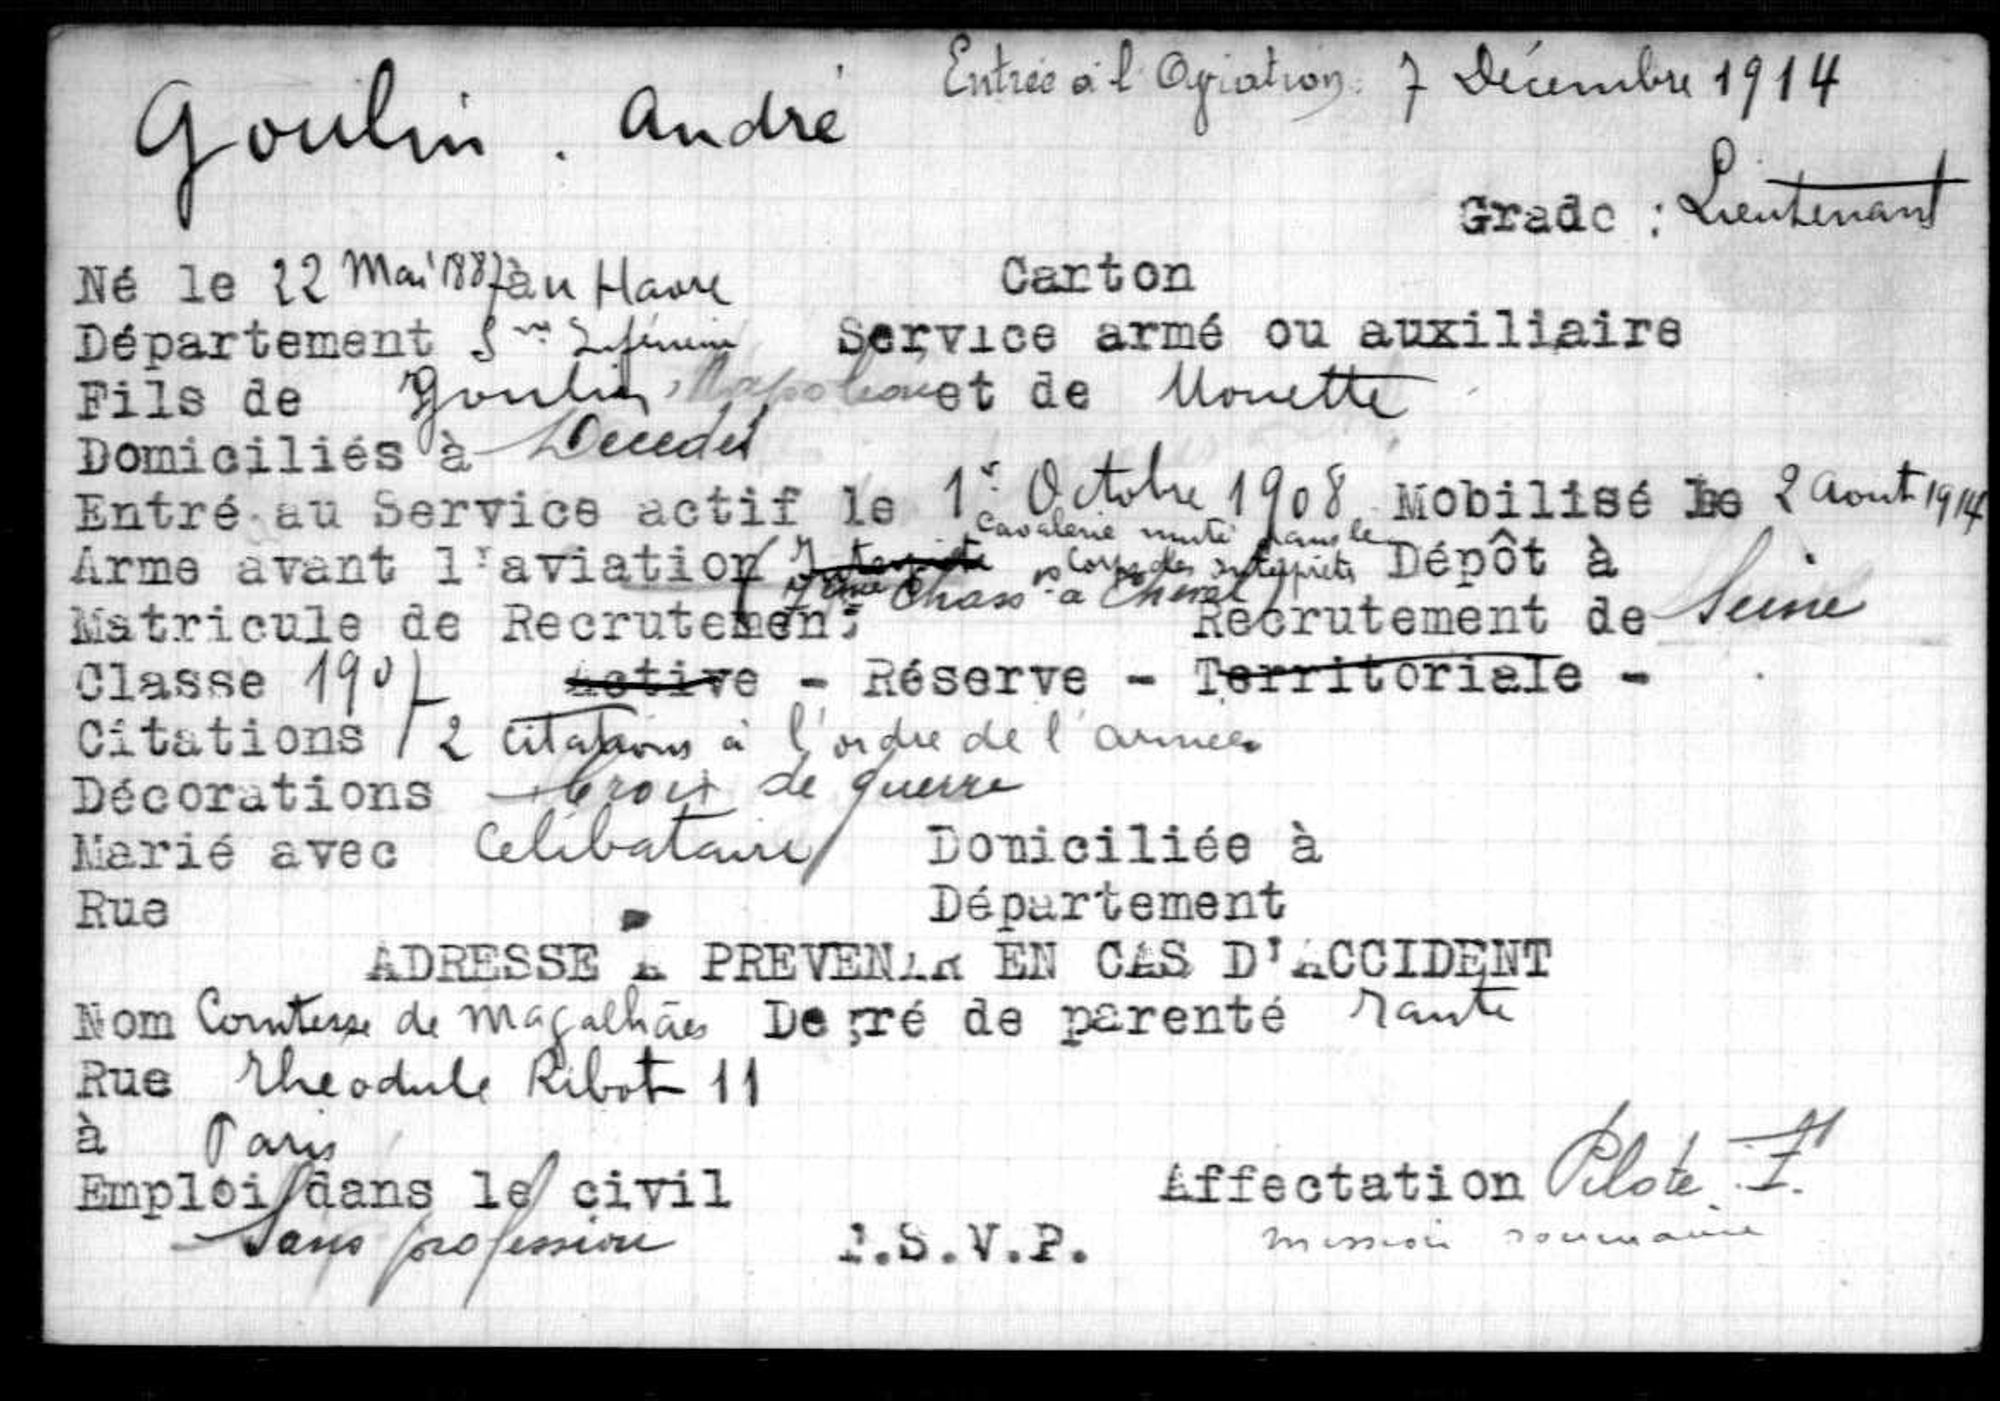 Entrée à l'Aviation. 7 Décembre 1914
Goulin. André
Grade : Lieutenant
Né le 22 Mai 1887 à au Havre Carton
Département Sne Inférieure Service armé ou auxiliaire
Fils de Goulin, Napoléon et de Monette
Domiciliés à Décédés
Entré au Service actif le 1r Octobre 1908 Mobilisé le 2 Aout 1914
Cavalerie muté dans le
Arme avant l'aviation (Interprète Corps des interprètes Dépôt à
Chass à Cheval)
Matricule de Recrutement: Recrutement de Seine
Classe 1907 Active - Réserve - Territoriale -
Citations / 2 citations à l'ordre de l'armée.
Décorations Croix de guerre
Marié avec Célibataire Domiciliée à
Rue Département
ADRESSE A PREVENIR EN CAS D'ACCIDENT
Nom Comtesse de Magalhães Degré de parenté Tante
Rue Théodule Ribot 11
à Paris
Emploi dans le civil Affectation Pilote F.
Sans profession T.S.V.P. mission roumaine